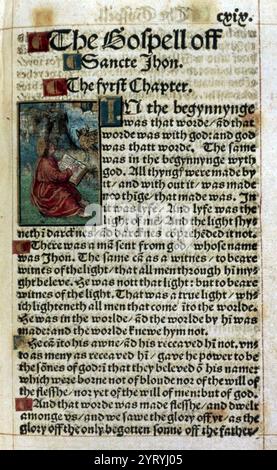 cxix.
The Gospell off
Sancte Jhon.
The fyrst Chapter.
IN the begynnynge
was that worde / ād that
worde was with god: and god
was thatt worde. The same
was in the begynnynge wyth
god. All thyngſ were made by
it / and with out it / was made
noo thīge / that made was. In
it was lyfe / And lyfe was the
light of mē / And the light shy
neth ī darcknes / ād darcknes cōprehēded it not.
There was a mā sent from god / whose name
was Jhon. The same cā as a witnes / to beare
witnes of the light / that all men through hī myg
ht beleve. He was nott that light: but to beare
witnes of the light. That was a true light / whi
ch lighteneth all men that come īto the worlde.
He was in the worlde / ād the worlde by hī was
made: and the worlde knewe hym not.
He cā īto his awne / ād his receaved hī not. vns
to as many as receaved hī / gave he power to be
the sōnes of god: ī that they beleved ō his name:
which were borne not of bloude nor of the will of
the flesshe / nor yet of the will of men: but of god.
And that worde was made flesshe / and dwelt
amonge vs / and we sawe the glory off yt / as the
glory off the only begotten sonne off the father /
alamy